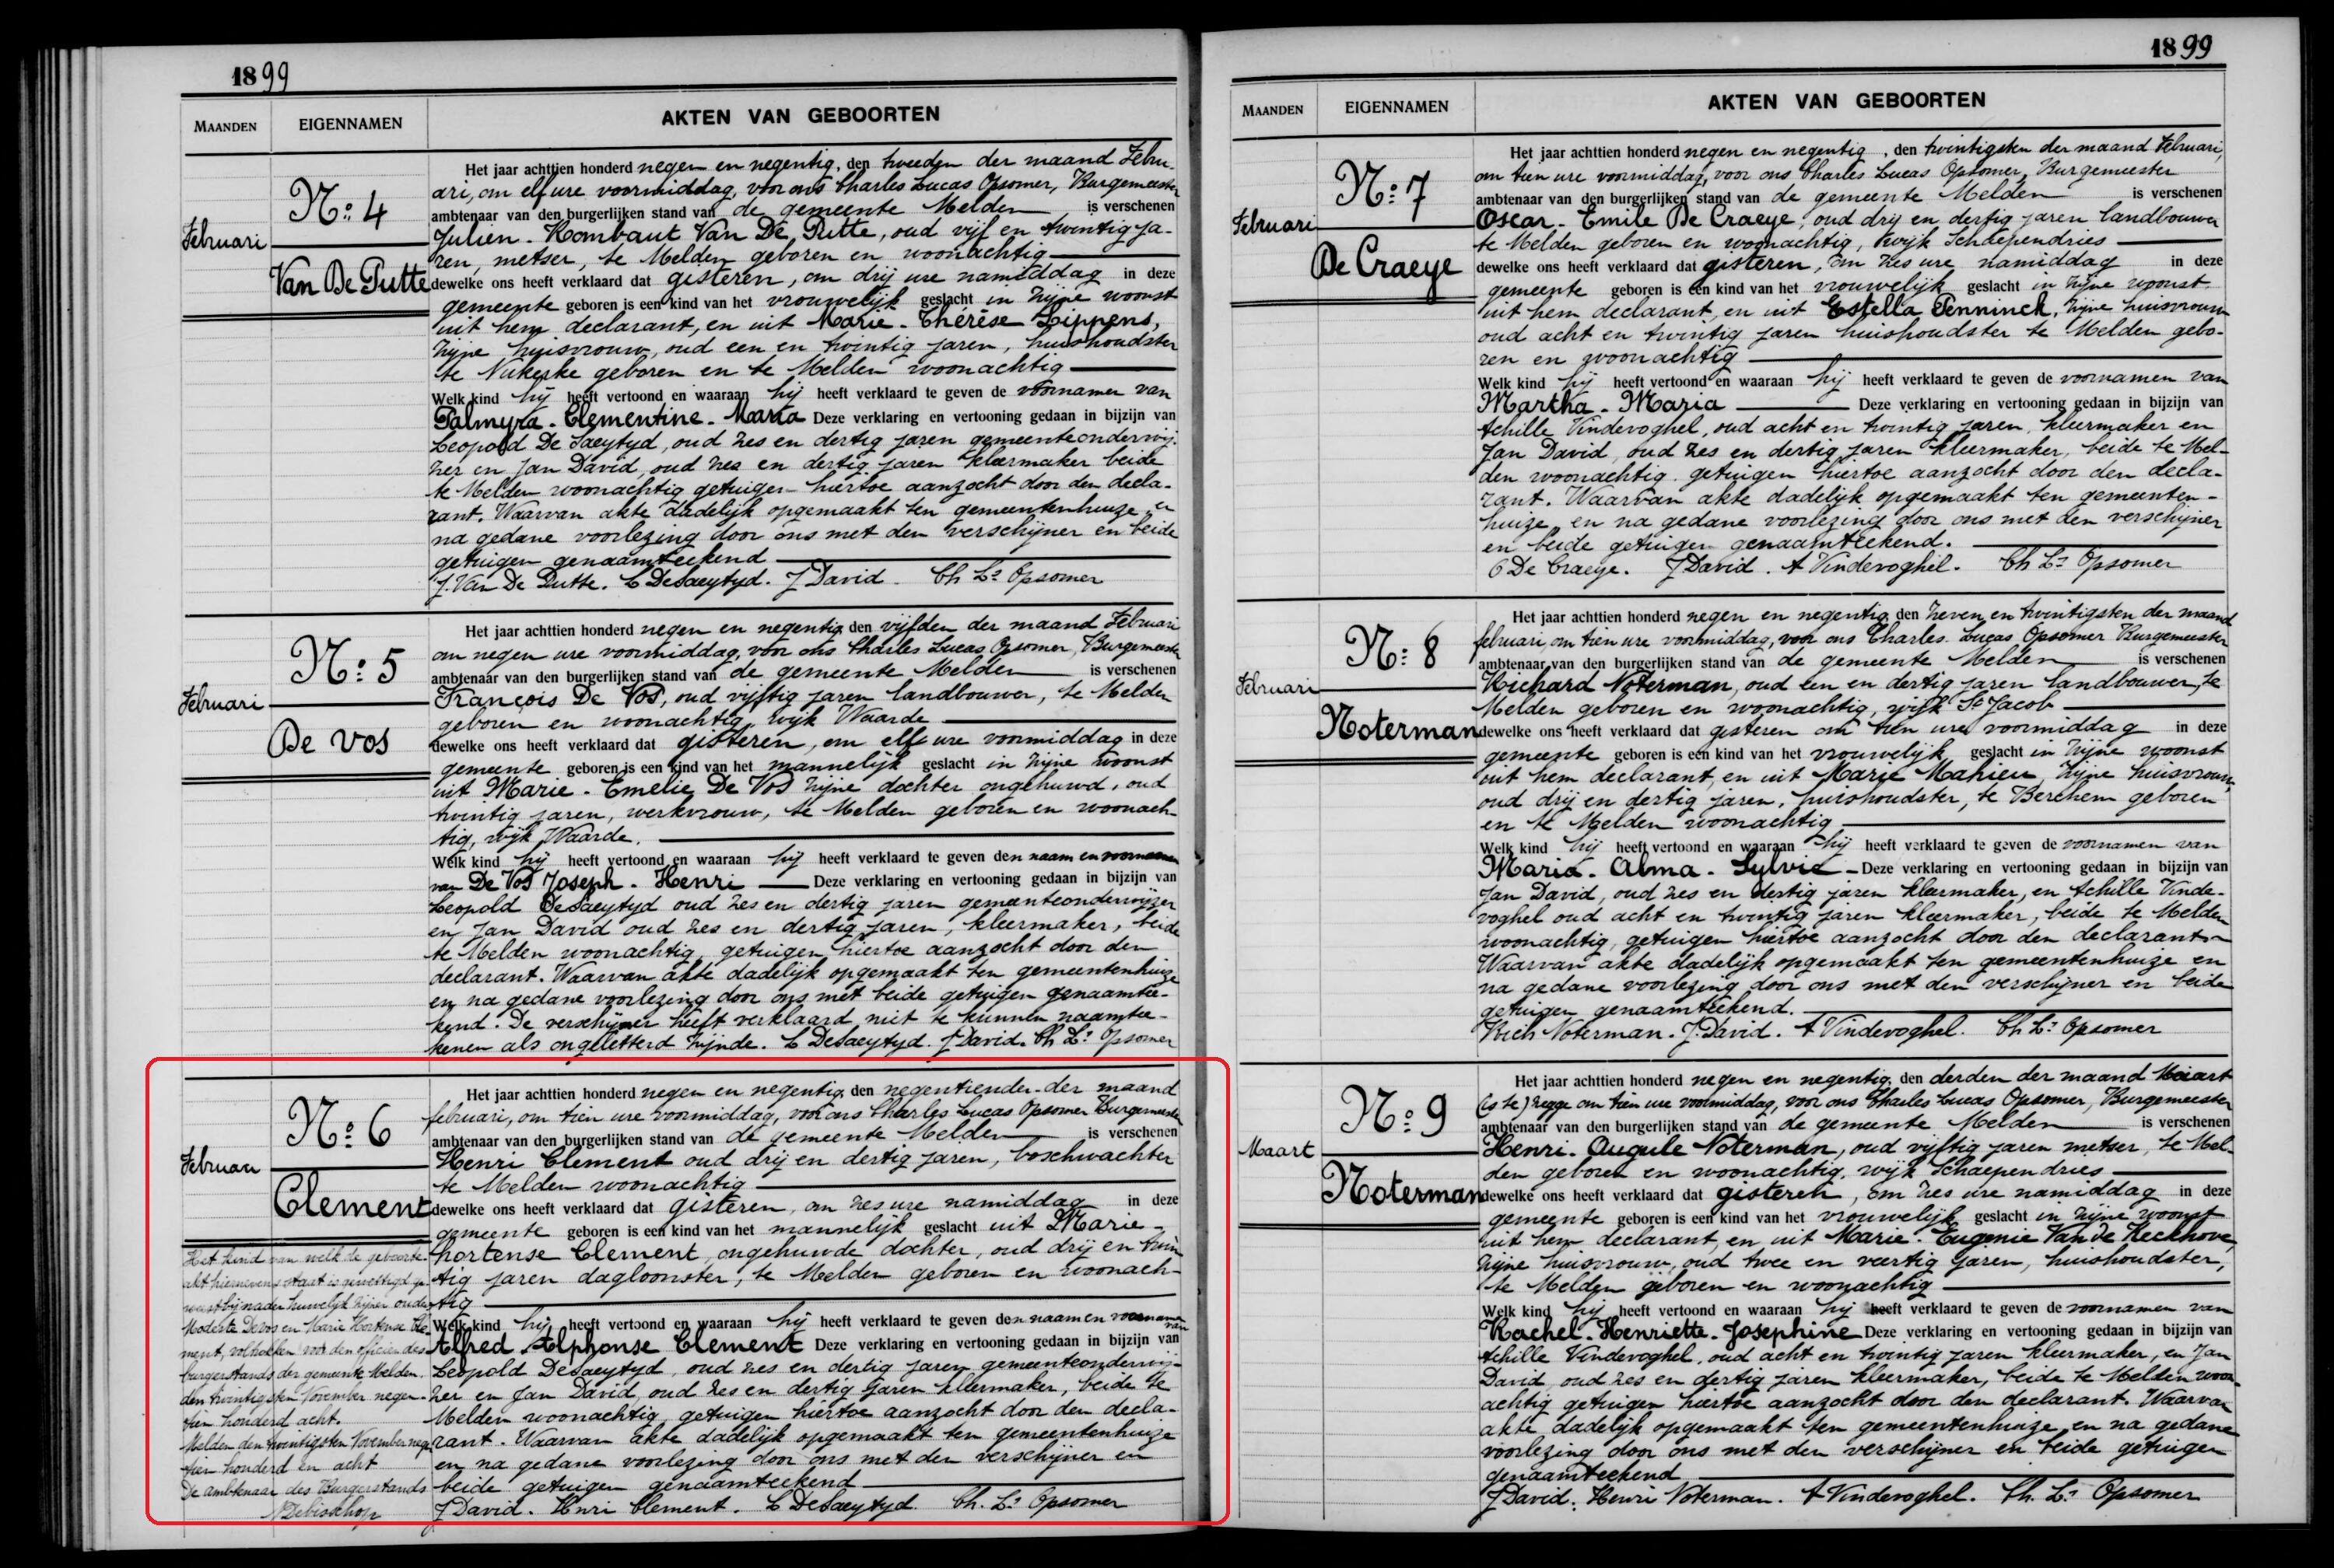 1899
MAANDEN EIGENNAMEN AKTEN VAN GEBOORTEN
Februari
Nº 4
Van De Putte
Het jaar achttien honderd negen en negentig, den tweeden der maand Febru-
ari, om elf ure voormiddag, voor ons Charles Lucas Opsomer, Burgemeester
ambtenaar van den burgerlijken stand van de gemeente Melden is verschenen
Julien-Rombaut Van De Putte, oud vijf en twintig ja-
ren, metser, te Melden geboren en woonachtig
dewelke ons heeft verklaard dat gisteren, om drij ure namiddag in deze
gemeente geboren is een kind van het vrouwelijk geslacht in zijne woonst
uit hem declarant, en uit Marie-Thérèse Lippens,
zijne huisvrouw, oud een en twintig jaren, huishoudster
te Nukerke geboren en te Melden woonachtig
Welk kind hij heeft vertoond en waaraan hij heeft verklaard te geven de voornamen van
Palmyra-Clementine-Maria Deze verklaring en vertooning gedaan in bijzijn van
Leopold De Saeytyd, oud zes en dertig jaren gemeenteonderwij-
zer en Jan David, oud zes en dertig jaren kleermaker beide
te Melden woonachtig getuigen hiertoe aanzocht door den decla-
rant. Waarvan akte dadelijk opgemaakt ten gemeentenhuize en
na gedane voorlezing door ons met den verschijner en beide
getuigen genaamteekend
J. Van De Putte. L DeSaeytyd. J David. Ch Ls Opsomer
Februari
Nº 5
De Vos
Het jaar achttien honderd negen en negentig, den vijfden der maand Februari
om negen ure voormiddag, voor ons Charles Lucas Opsomer, Burgemeester
ambtenaar van den burgerlijken stand van de gemeente Melden is verschenen
François De Vos, oud vijftig jaren landbouwer, te Melden
geboren en woonachtig, wijk Waarde
dewelke ons heeft verklaard dat gisteren, om elf ure voormiddag in deze
gemeente geboren is een kind van het mannelijk geslacht in zijne woonst
uit Marie-Emelie De Vos zijne dochter ongehuwd, oud
twintig jaren, werkvrouw, te Melden geboren en woonach-
tig, wijk Waarde.
Welk kind hij heeft vertoond en waaraan hij heeft verklaard te geven den naam en voornamen
van De Vos Joseph-Henri Deze verklaring en vertooning gedaan in bijzijn van
Leopold DeSaeytyd oud zes en dertig jaren gemeenteonderwijzer
en Jan David oud zes en dertig jaren, kleermaker, beide
te Melden woonachtig, getuigen hiertoe aanzocht door den
declarant. Waarvan akte dadelijk opgemaakt ten gemeentenhuize
en na gedane voorlezing door ons met beide getuigen genaamtee-
kend. De verschijner heeft verklaard niet te kunnen naamtee-
kenen als ongeletterd zijnde. L DeSaeytyd. J David. Ch Ls Opsomer
Februari
Nº 6
Clement
Het kind van welk de geboorte-
akt hiernevens staat is gewettigd ge-
weest bij nader huwelijk zijner ouders
Modeste Devos en Marie Hortense Cle-
ment, voltrokken voor den officier des
burgerstands der gemeente Melden.
den twintigsten November negen-
tien honderd acht.
Melden den twintigsten November negen-
tien honderd en acht
De ambtenaar des Burgerstands
Debisschop
Het jaar achttien honderd negen en negentig, den negentienden der maand
februari, om tien ure voormiddag, voor ons Charles Lucas Opsomer Burgemeester
ambtenaar van den burgerlijken stand van de gemeente Melden is verschenen
Henri Clement oud drij en dertig jaren, boschwachter
te Melden woonachtig
dewelke ons heeft verklaard dat gisteren, om zes ure namiddag in deze
gemeente geboren is een kind van het mannelijk geslacht uit Marie-
hortense Clement, ongehuwde dochter, oud drij en twin-
tig jaren dagloonster, te Melden geboren en woonach-
tig
Welk kind hij heeft vertoond en waaraan hij heeft verklaard te geven den naam en voornamen van
Alfred Alphonse Clement Deze verklaring en vertooning gedaan in bijzijn van
Leopold DeSaeytyd, oud zes en dertig jaren gemeenteonderwij-
zer en Jan David, oud zes en dertig jaren kleermaker, beide te
Melden woonachtig, getuigen hiertoe aanzocht door den decla-
rant. Waarvan akte dadelijk opgemaakt ten gemeentenhuize
en na gedane voorlezing door ons met den verschijner en
beide getuigen genaamteekend
J David. Henri Clement. L DeSaeytyd. Ch. Ls Opsomer
1899
MAANDEN EIGENNAMEN AKTEN VAN GEBOORTEN
Februari
Nº 7
De Craeye
Het jaar achttien honderd negen en negentig, den twintigsten der maand Februari,
om tien ure voormiddag, voor ons Charles Lucas Opsomer, Burgemeester
ambtenaar van den burgerlijken stand van de gemeente Melden is verschenen
Oscar-Emile De Craeye, oud drij en dertig jaren landbouwer
te Melden geboren en woonachtig, wijk Schaependries
dewelke ons heeft verklaard dat gisteren, om zes ure namiddag in deze
gemeente geboren is een kind van het vrouwelijk geslacht in zijne woonst
uit hem declarant, en uit Estella Penninck, zijne huisvrouw
oud acht en twintig jaren huishoudster te Melden gebo-
ren en woonachtig
Welk kind hij heeft vertoond en waaraan hij heeft verklaard te geven de voornamen van
Martha-Maria Deze verklaring en vertooning gedaan in bijzijn van
Achille Vindevoghel, oud acht en twintig jaren, kleermaker en
Jan David, oud zes en dertig jaren kleermaker, beide te Mel-
den woonachtig getuigen hiertoe aanzocht door den decla-
rant. Waarvan akte dadelijk opgemaakt ten gemeenten-
huize en na gedane voorlezing door ons met den verschijner
en beide getuigen genaamteekend.
O De Craeye. J David. A Vindevoghel. Ch Ls Opsomer
Februari
Nº 8
Noterman
Het jaar achttien honderd negen en negentig, den zeven en twintigsten der maand
februari, om tien ure voormiddag, voor ons Charles Lucas Opsomer Burgemeester
ambtenaar van den burgerlijken stand van de gemeente Melden is verschenen
Richard Noterman, oud een en dertig jaren landbouwer, te
Melden geboren en woonachtig, wijk St Jacob
dewelke ons heeft verklaard dat gisteren om tien ure voormiddag in deze
gemeente geboren is een kind van het vrouwelijk geslacht in zijne woonst
uit hem declarant, en uit Marie Mahieu, zijne huisvrouw,
oud drij en dertig jaren, huishoudster, te Berchem geboren
en te Melden woonachtig
Welk kind hij heeft vertoond en waaraan hij heeft verklaard te geven de voornamen van
Maria-Alma-Sylvie Deze verklaring en vertooning gedaan in bijzijn van
Jan David, oud zes en dertig jaren kleermaker, en Achille Vinde-
voghel oud acht en twintig jaren kleermaker, beide te Melden
woonachtig, getuigen hiertoe aanzocht door den declarant
Waarvan akte dadelijk opgemaakt ten gemeentenhuize en
na gedane voorlezing door ons met den verschijner en beide
getuigen genaamteekend.
Rich Noterman. J. David. A Vindevoghel. Ch Ls Opsomer
Maart
Nº 9
Noterman
Het jaar achttien honderd negen en negentig, den derden der maand Maart
(s te) zegge om tien ure voormiddag, voor ons Charles Lucas Opsomer, Burgemeester
ambtenaar van den burgerlijken stand van de gemeente Melden is verschenen
Henri-Augule Noterman, oud vijftig jaren metser, te Mel-
den geboren en woonachtig, wijk Schaependries
dewelke ons heeft verklaard dat gisteren, om zes ure namiddag in deze
gemeente geboren is een kind van het vrouwelijk geslacht in zijne woonst
uit hem declarant, en uit Marie-Eugenie Van de Keckhove,
zijne huisvrouw, oud twee en veertig jaren, huishoudster,
te Melden geboren en woonachtig
Welk kind hij heeft vertoond en waaraan hij heeft verklaard te geven de voornamen van
Rachel-Henriette-Josephine Deze verklaring en vertooning gedaan in bijzijn van
Achille Vindevoghel, oud acht en twintig jaren kleermaker, en Jan
David, oud zes en dertig jaren kleermaker, beide te Melden woon-
achtig getuigen hiertoe aanzocht door den declarant. Waarvan
akte dadelijk opgemaakt ten gemeentenhuize en na gedane
voorlezing door ons met den verschijner en beide getuigen
genaamteekend
J David. Henri Noterman. A Vindevoghel. Ch. Ls Opsomer